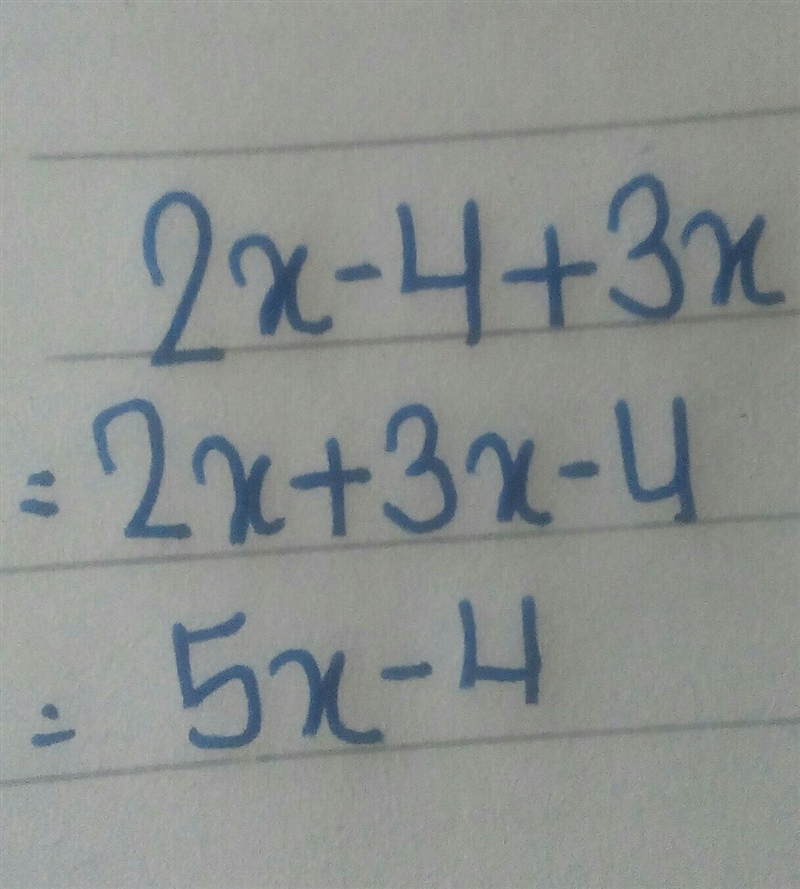 2x-4+3x
=2x+3x-4
= 5x-4